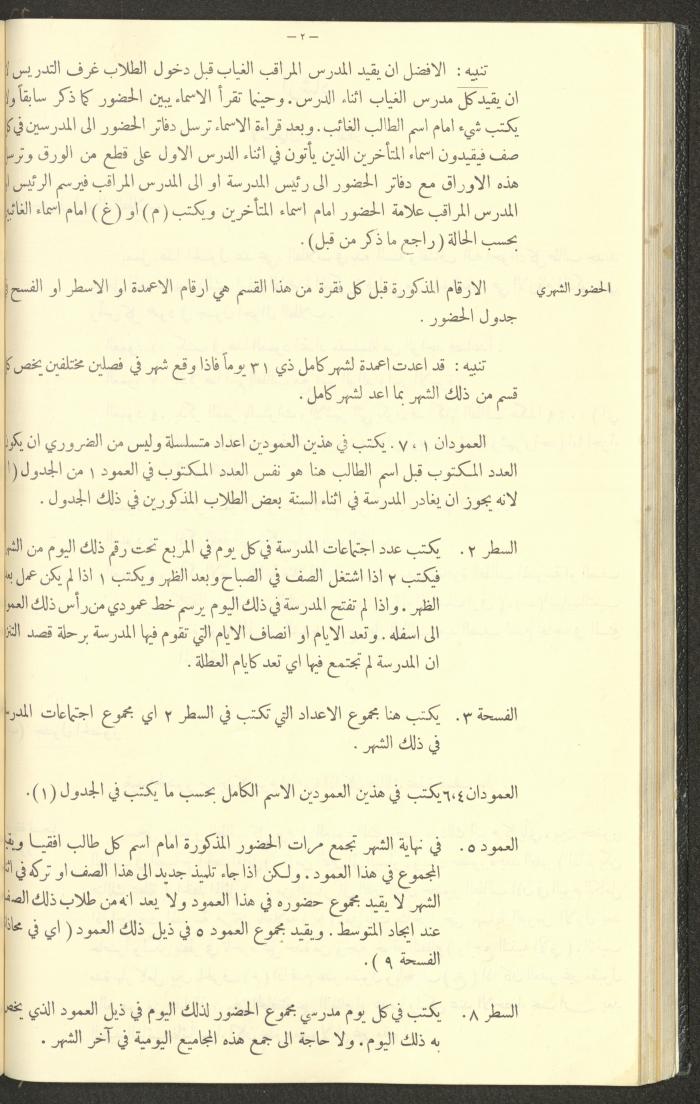 — ٢ —
تنبيه : الافضل ان يقيد المدرس المراقب الغياب قبل دخول الطلاب غرف التدريس
ان يقيد كل مدرس الغياب اثناء الدرس . وحينما تقرأ الاسماء يبين الحضور كما ذكر سابقاً
يكتب شيء امام اسم الطالب الغائب . وبعد قراءة الاسماء ترسل دفاتر الحضور الى المدرسين في
صف فيقيدون اسماء المتأخرين الذين يأتون في اثناء الدرس الاول على قطع من الورق
هذه الاوراق مع دفاتر الحضور الى رئيس المدرسة او الى المدرس المراقب فيرسم الرئيس
المدرس المراقب علامة الحضور امام اسماء المتأخرين ويكتب ( م ) او ( غ ) امام اسماء
بحسب الحالة ( راجع ما ذكر من قبل ) .
الحضور الشهري
الارقام المذكورة قبل كل فقرة من هذا القسم هي ارقام الاعمدة او الاسطر او الفسح
جدول الحضور .
تنبيه : قد اعدت اعمدة لشهر كامل ذي ٣١ يوماً فاذا وقع شهر في فصلين مختلفين يخص
قسم من ذلك الشهر بما اعد لشهر كامل .
العمودان ١ ، ٧ . يكتب في هذين العمودين اعداد متسلسلة وليس من الضروري ان
العدد المكتوب قبل اسم الطالب هنا هو نفس العدد المكتوب في العمود ١ من الجدول
لانه يجوز ان يغادر المدرسة في اثناء السنة بعض الطلاب المذكورين في ذلك الجدول .
السطر ٢ . يكتب عدد اجتماعات المدرسة في كل يوم في المربع تحت رقم ذلك اليوم من
فيكتب ٢ اذا اشتغل الصف في الصباح وبعد الظهر ويكتب ١ اذا لم يكن عمل
الظهر . واذا لم تفتح المدرسة في ذلك اليوم يرسم خط عمودي من رأس ذلك
الى اسفله . وتعد الايام او انصاف الايام التي تقوم فيها المدرسة برحلة قصد
ان المدرسة لم تجتمع فيها اي تعد كايام العطلة .
الفسحة ٣ . يكتب هنا مجموع الاعداد التي تكتب في السطر ٢ اي مجموع اجتماعات
في ذلك الشهر .
العمودان ٤،٦ يكتب في هذين العمودين الاسم الكامل بحسب ما يكتب في الجدول (١) .
العمود ٥ . في نهاية الشهر تجمع مرات الحضور المذكورة امام اسم كل طالب افقيا
المجموع في هذا العمود . ولكن اذا جاء تلميذ جديد الى هذا الصف او تركه في
الشهر لا يقيد مجموع حضوره في هذا العمود ولا يعد انه من طلاب ذلك
عند ايجاد المتوسط . ويقيد مجموع العمود ٥ في ذيل ذلك العمود ( اي في
الفسحة ٩ ) .
السطر ٨ . يكتب في كل يوم مدرسي مجموع الحضور لذلك اليوم في ذيل العمود الذي
به ذلك اليوم . ولا حاجة الى جمع هذه المجاميع اليومية في آخر الشهر .